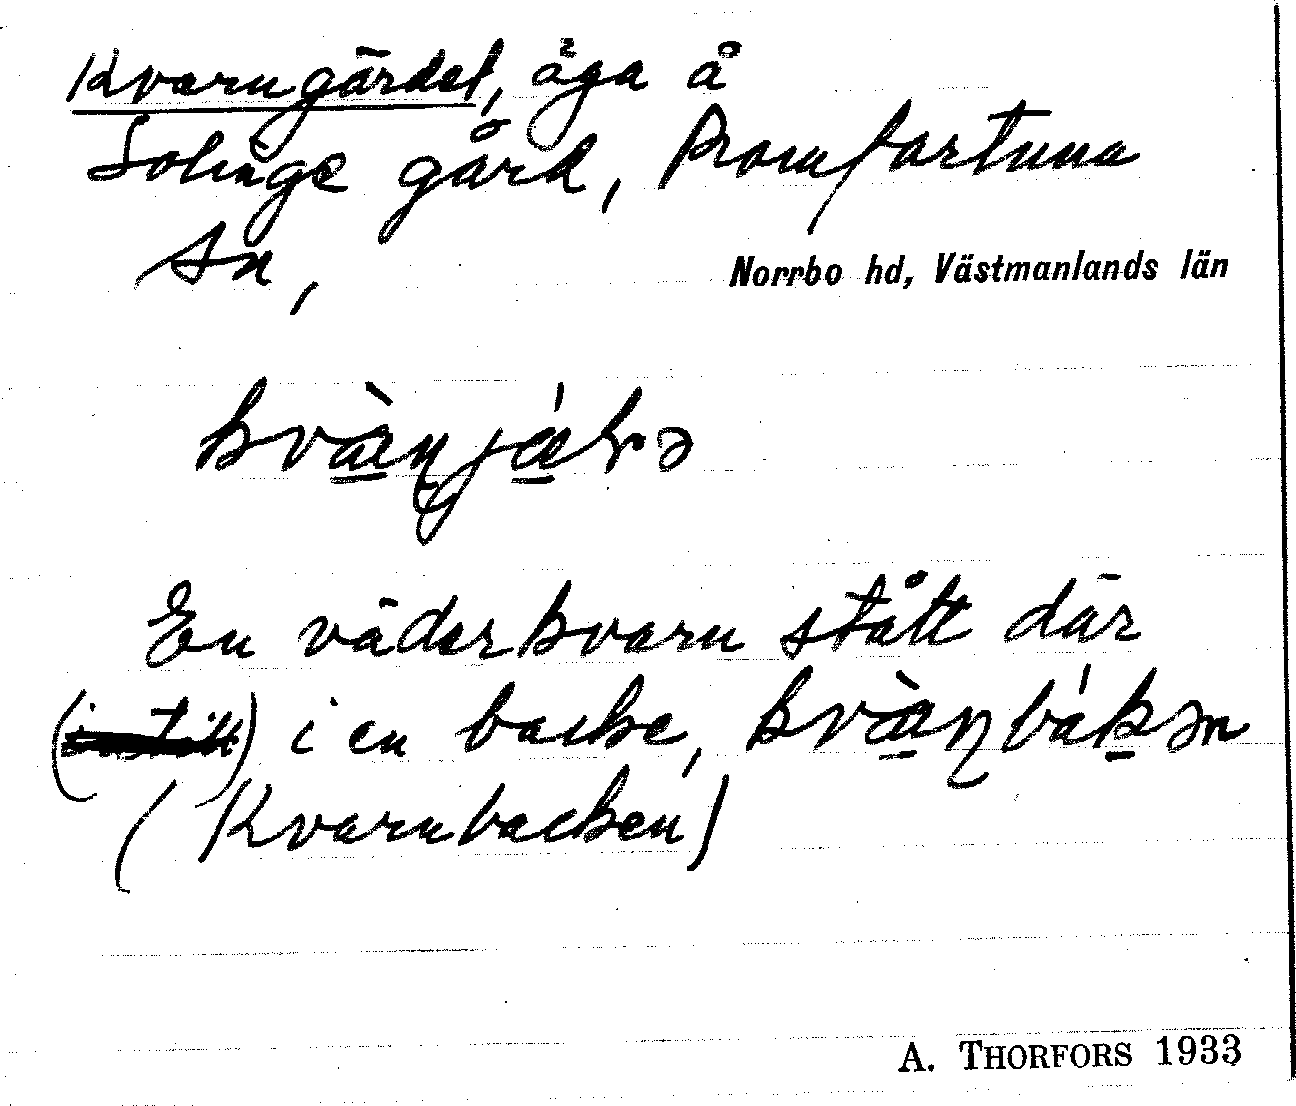 Kvarngärdet, äga å
Solinge gård, Romfartuna
sn,
Norrbo hd, Västmanlands län
En väderkvarn stått där
i en backe,
(Kvarnbacken)
A. THORFORS 1933